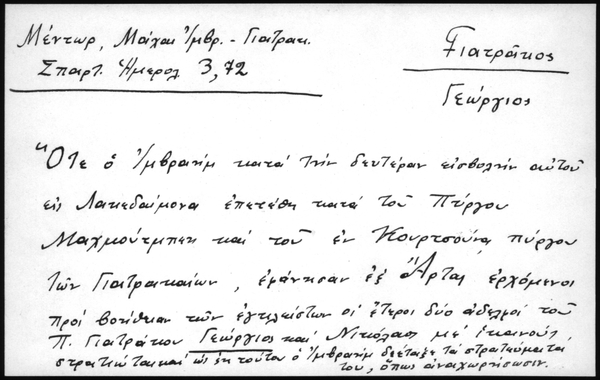 Μέντωρ, Μάχαι Ἰμβρ. - Γιατρακ.
Σπαρτ. Ἡμερολ 3, 72
Γιατρᾶκος
Γεώργιος
"Ὅτε ὁ Ἰμβραήμ κατά τήν δευτέραν εἰσβολήν αὐτοῦ
εἰς Λακεδαίμονα ἐπετέθη κατά τοῦ Πύργου
Μαχμούτμπεη καί τοῦ ἐν Κουρτσούνᾳ πύργου
τῶν Γιατρακαίων, ἐφάνησαν ἐξ Ἄρτας ἐρχόμενοι
πρός βοήθειαν τῶν ἐγκλείστων οἱ ἕτεροι δύο ἀδελφοί τοῦ
Π. Γιατράκου Γεώργιος καί Νικόλαος μέ ἱκανούς
στρατιώτας καί ὡς ἐκ τούτου ὁ Ἰμβραήμ διέταξε τά στρατεύματά
του, ὅπως ἀναχωρήσωσιν.